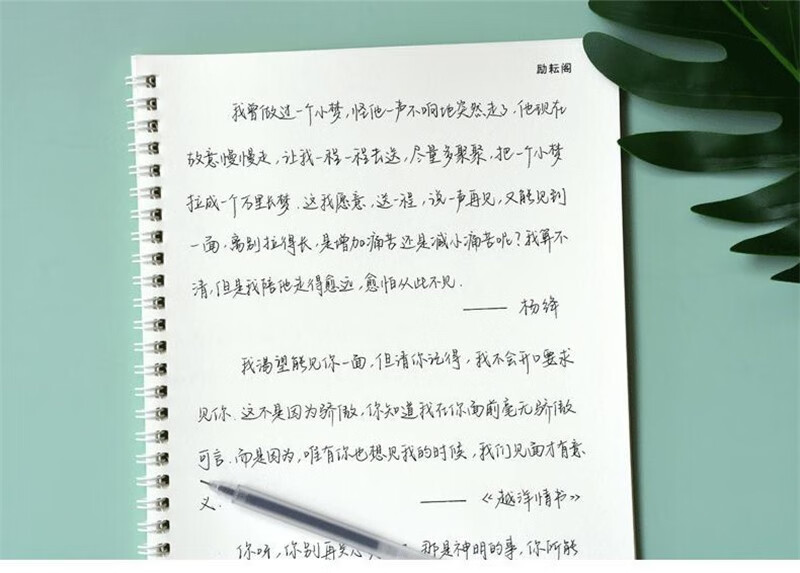 励耘阁
我曾做过一个小梦，怪他一声不响地突然走了。他现在
故意慢慢走，让我一程一程去送，尽量多聚聚，把一个小梦
拉成一个万里长梦。这我愿意，送一程，说一声再见，又能见到
一面，离别拉得长，是增加痛苦还是减小痛苦呢？我算不
清，但是我陪他走得愈远，愈怕从此不见。
—— 杨绛
我渴望能见你一面，但请你记得，我不会开口要求
见你。这不是因为骄傲，你知道我在你面前毫无骄傲
可言。而是因为，唯有你也想见我的时候，我们见面才有意
义。
——《越洋情书》
你呀，你别再
那是神明的事，你所能